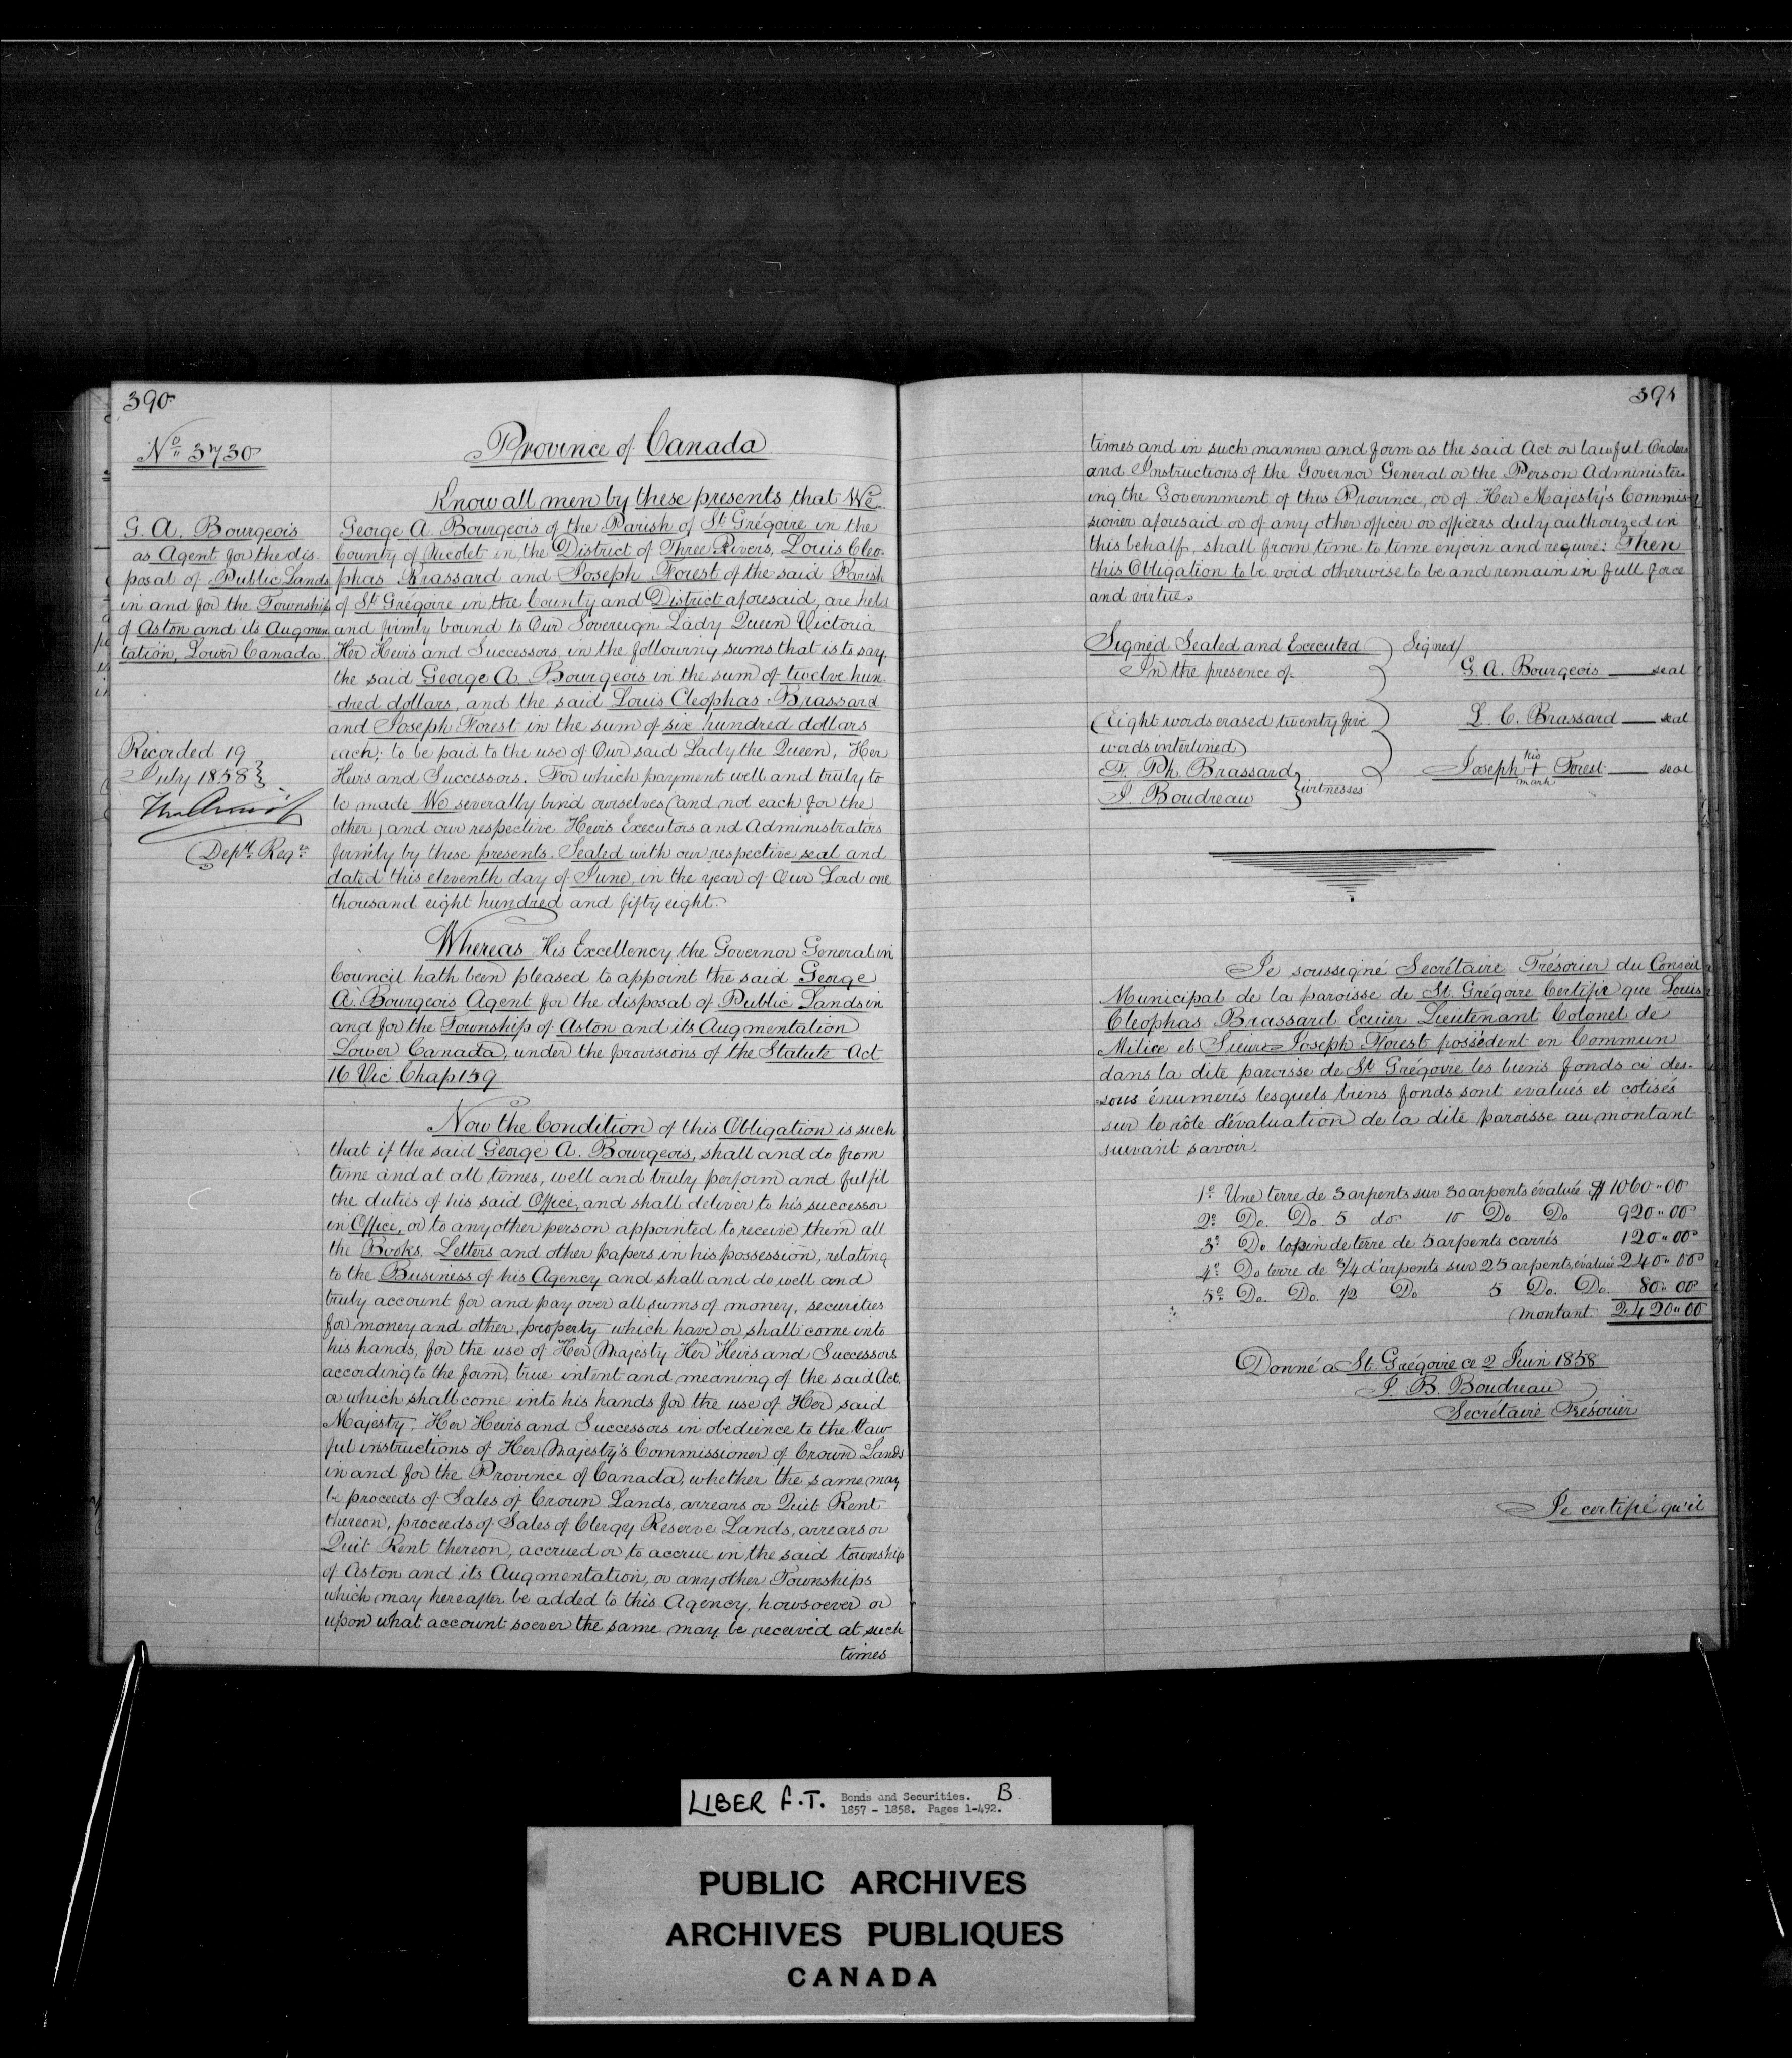 390
No 3730
Province of Canada
Know all men by these presents that We
G. A. Bourgeois
as Agent for the dis-
posal of Public Lands
in and for the Township
of Aston and its Augmen
tation, Lower Canada
Recorded 19
July 1858
Depy. Regr.
George A. Bourgeois of the Parish of St Grégoire in the
County of Nicolet in the District of Three Rivers, Louis Cleo-
phas Brassard and Joseph Forest of the said Parish
of St Grégoire in the County and District aforesaid, are held
and firmly bound to Our Sovereign Lady Queen Victoria
Her Heirs and Successors in the following sums that is to say,
the said George A. Bourgeois in the sum of twelve hun
dred dollars, and the said Louis Cleophas Brassard
and Joseph Forest in the sum of six hundred dollars
each; to be paid to the use of Our said Lady the Queen, Her
Heirs and Successors. For which payment well and truly to
be made We severally bind ourselves (and not each for the
other) and our respective Heirs Executors and Administrators
firmly by these presents. Sealed with our respective seal and
dated this eleventh day of June, in the year of Our Lord one
thousand eight hundred and fifty eight.
Whereas His Excellency the Governor General in
Council hath been pleased to appoint the said George
A. Bourgeois Agent for the disposal of Public Lands in
and for the Township of Aston and its Augmentation
Lower Canada, under the provisions of the Statute Act
16 Vic Chap 159
Now the Condition of this Obligation is such
that if the said George A. Bourgeois, shall and do from
time and at all times, well and truly perform and fulfil
the duties of his said Office, and shall deliver to his successor
in Office, or to any other person appointed to receive them all
the Books, Letters and other papers in his possession, relating
to the Business of his Agency and shall and do well and
truly account for and pay over all sums of money, securities
for money and other property which have or shall come into
his hands, for the use of Her Majesty Her Heirs and Successors
according to the form, true intent and meaning of the said Act,
or which shall come into his hands for the use of Her said
Majesty, Her Heirs and Successors in obedience to the law
ful instructions of Her Majesty's Commissioner of Crown Lands
in and for the Province of Canada, whether the same may
be proceeds of Sales of Crown Lands, arrears or Quit Rent
thereon, proceeds of Sales of Clergy Reserve Lands, arrears or
Quit Rent thereon, accrued or to accrue in the said township
of Aston and its Augmentation, or any other Townships
which may hereafter be added to this Agency, howsoever or
upon what account soever the same may be received at such
times
391
times and in such manner and form as the said Act or lawful Orders
and Instructions of the Governor General or the Person Administer-
ing the Government of this Province, or of Her Majesty's Commis-
sioner aforesaid or of any other officer or officers duly authorized in
this behalf, shall from time to time enjoin and require: Then
this Obligation to be void otherwise to be and remain in full force
and virtue.
Signed Sealed and Executed Signed/
In the presence of G. A. Bourgeois seal
(Eight words erased twenty five L. C. Brassard seal
words interlined)
F. Ph. Brassard Joseph his + mark Forest seal
J. Boudreau witnesses
Je soussigné Secrétaire Trésorier du Conseil
Municipal de la paroisse de St Grégoire Certifie que Louis
Cleophas Brassard Ecuier Lieutenant Colonel de
Milice et Sieur Joseph Forest possèdent en Commun
dans la dite paroisse de St Grégoire les biens fonds ci des-
sous énumerés lesquels biens fonds sont evalués et cotisés
sur le rôle d'évaluation de la dite paroisse au montant
suivant savoir.
1o Une terre de 3 arpents sur 30 arpents évaluée $1060"00
2o Do. Do. 5 do 10 Do Do 920"00
3o Do lopin de terre de 5 arpents carrés 120"00
4o Do terre de 3/4 d'arpents sur 25 arpents, évaluée 240"00
5o Do. Do. 1/2 Do 5 Do. Do. 80"00
montant 2420"00
Donné a St. Grégoire ce 2 Juin 1858
J. B. Boudreau
Secrétaire Trésorier
Je certifie qu'il
LIBER F.T. Bonds and Securities. B
1857 - 1858. Pages 1-492.
PUBLIC ARCHIVES
ARCHIVES PUBLIQUES
CANADA